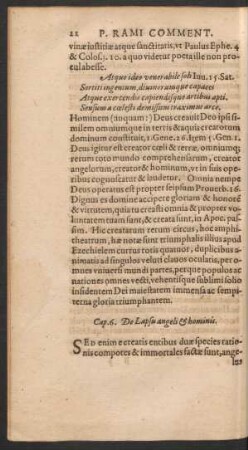 22 P. RAMI COMMENT.
uinæ iustitiæ atque sanctitatis, vt Paulus Ephe. 4
& Colos. 3. 10. a quo videtur poeta ille non pro-
cul abesse.
Atque ideo venerabile soli Iuu. 15. Sat.
Sortiti ingenium, diuinorumque capaces
Atque exercendis capiendisque artibus apti.
Sensum a cælesti demissum traximus arce.
Hominem (inquam:) Deus creauit Deo ipsi si-
millem omniumque in terris & aquis creatorum
dominum constituit, 1. Gene. 26. Igem 5. Gen. 1.
Deus igitur est creator cœli & terræ, omniumq;
rerum toto mundo comprehensarum, creator
angelorum, creator & hominum, vt in suis ope-
ribus cognoscatur & laudetur. Omnia nempe
Deus operatus est propter seipsum Prouerb. 16.
Dignus es domine accipere gloriam & honorē
& virtutem, quia tu creasti omnia & propter vo-
luntatem tuam sunt, & creata sunt, in Apoc. pas-
sim. Hic creatarum rerum circus, hoc amphi-
theatrum, hæ notæ sunt triumphalis illius apud
Ezechielem currus totis quatuor, duplicibus a-
nimatis ad singulos veluti clauos ocularia, per o-
mnes vniuersi mundi partes, perque populos ac
nationes omnes vecti, vehentisque sublimi solio
insidentem Dei maiestatem immensa ac sempi-
terna gloria triumphantem.
Cap. 6. De Lapsu angeli & hominis.
SED enim e creatis entibus duæ species ratio-
nis compotes & immortales factæ sunt, ange-
lus